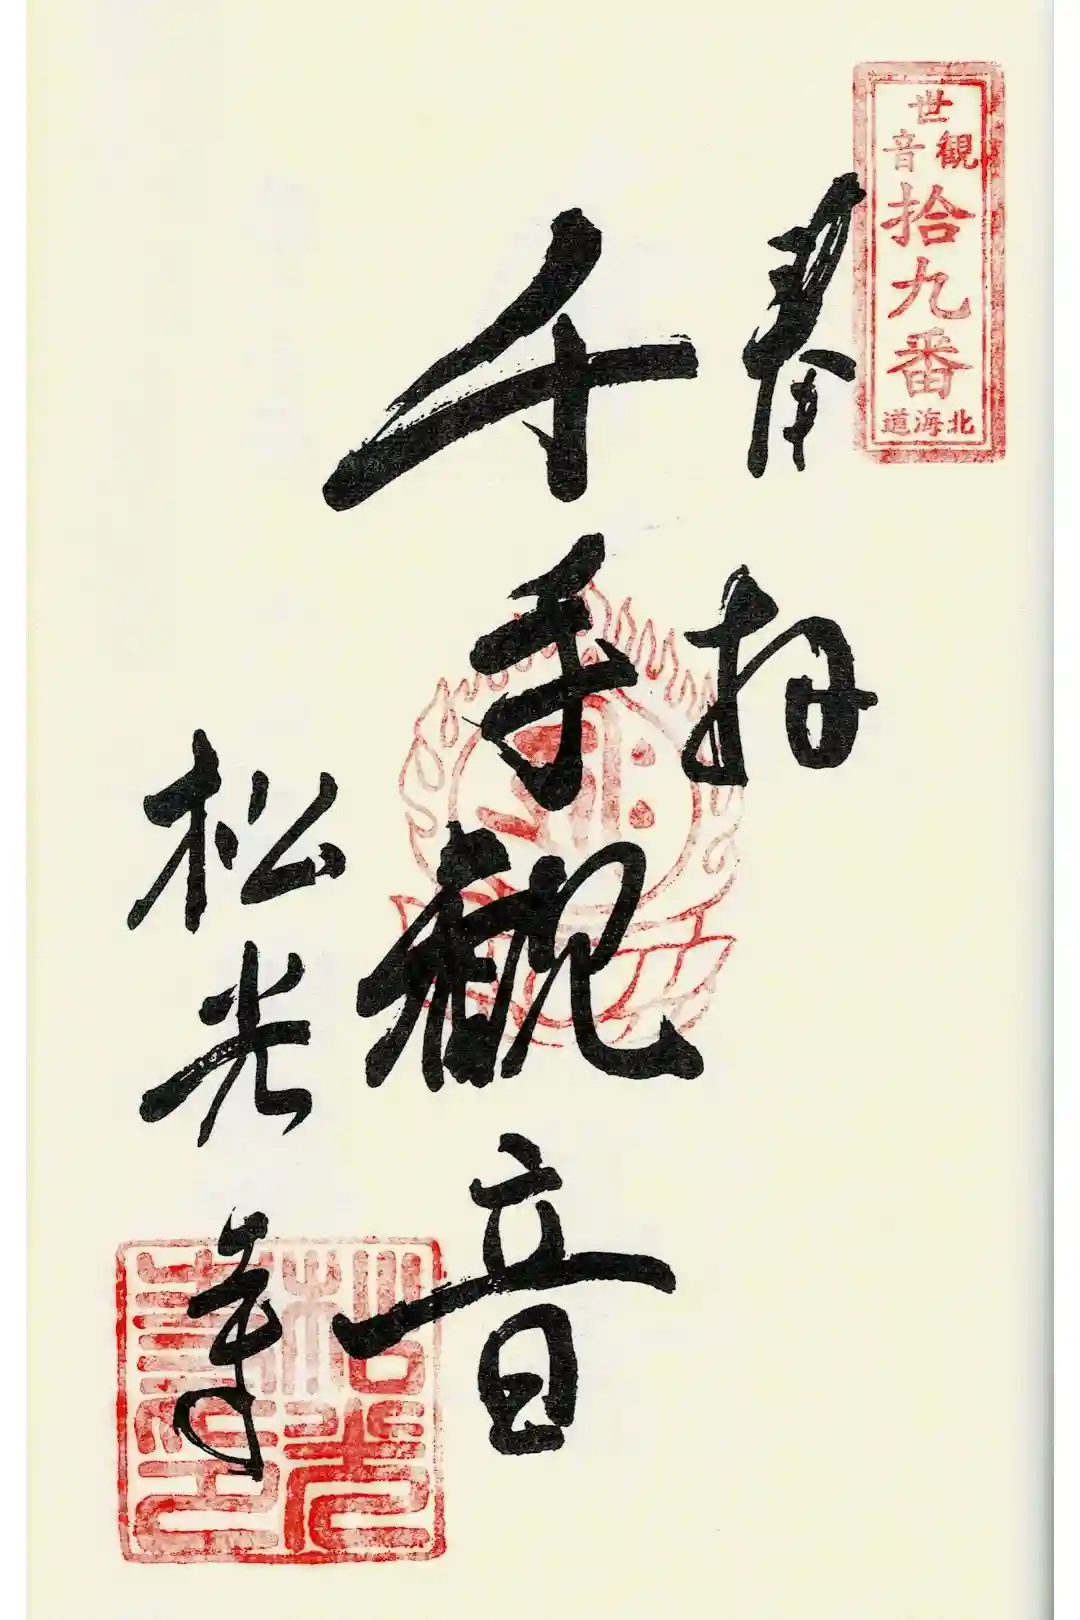 観世音
拾九番
北海道
奉拝
千手観音
松光寺
松光寺印